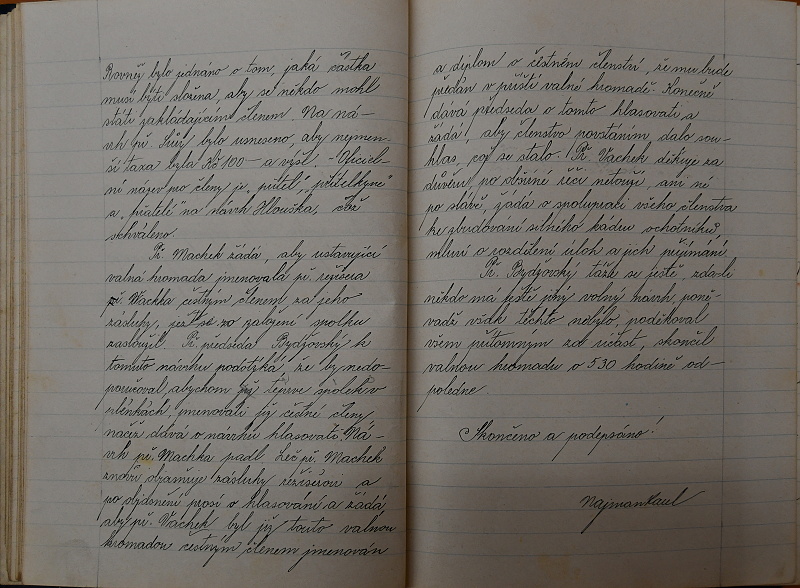 Rovněž bylo jednáno o tom, jaká částka
musí býti složena, aby se někdo mohl
státi zakládajícím členem. Na ná-
vrh př. bylo usneseno, aby nejmen-
ší taxa byla Kč 100- a výšl. - Oficiel-
ní název pro členy je „přítel", „přítelkyně"
a „přátelé" na návrh Hlouška, což
schváleno.
Př. Machek žádá, aby ustavující
valná hromada jmenovala př. režiséra
př. Vacka čestným členem za jeho
zásluhy, jež se o založení spolku
zasloužil. Př. předseda Bydžovský k
tomuto návrhu podotýká, že by nedo-
poručoval, abychom již teprve spolek v
plénkách, jmenovali již čestné členy
načež dává o návrhu hlasovati. Ná-
vrh př. Machka padl. Leč př. Machek
znovu objasňuje zásluhy režisérovi a
po objasnění prosí o hlasování a žádá,
aby př. Vachek byl již touto valnou
hromadou čestným členem jmenován
a diplom o čestném členství, že mu bude
předán v příští valné hromadě. Konečně
dává předseda o tomto hlasovati a
žádá, aby členstvo povstáním dalo sou-
hlas, což se stalo. Př. Vachek děkuje za
důvěru, po obšírné řeči netouží, ani né
po slávě, žádá o spolupráci všeho členstva
ke zbudování silného kádru ochotníků,
mluví o rozdělení úloh a jich přijímání.
Př. Bydžovský táže se ještě zdali
někdo má ještě jiný volný návrh, poně-
vadž však těchto nebylo, poděkoval
všem přítomným za účast, skončil
valnou hromadu o 530 hodině od-
poledne.
Skončeno a podepsáno!
Najman Karel